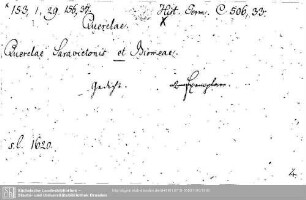 x 153, 1, 29. 156, 37. Hist. Germ. C. 506, 33.
Querelae. X
Querelae Saravictonis et Biomeae.
Gedicht. 2 Exemplare.
s.l. 1620. 4.
Sächsische Landesbibliothek -
Staats- und Universitätsbibliothek Dresden